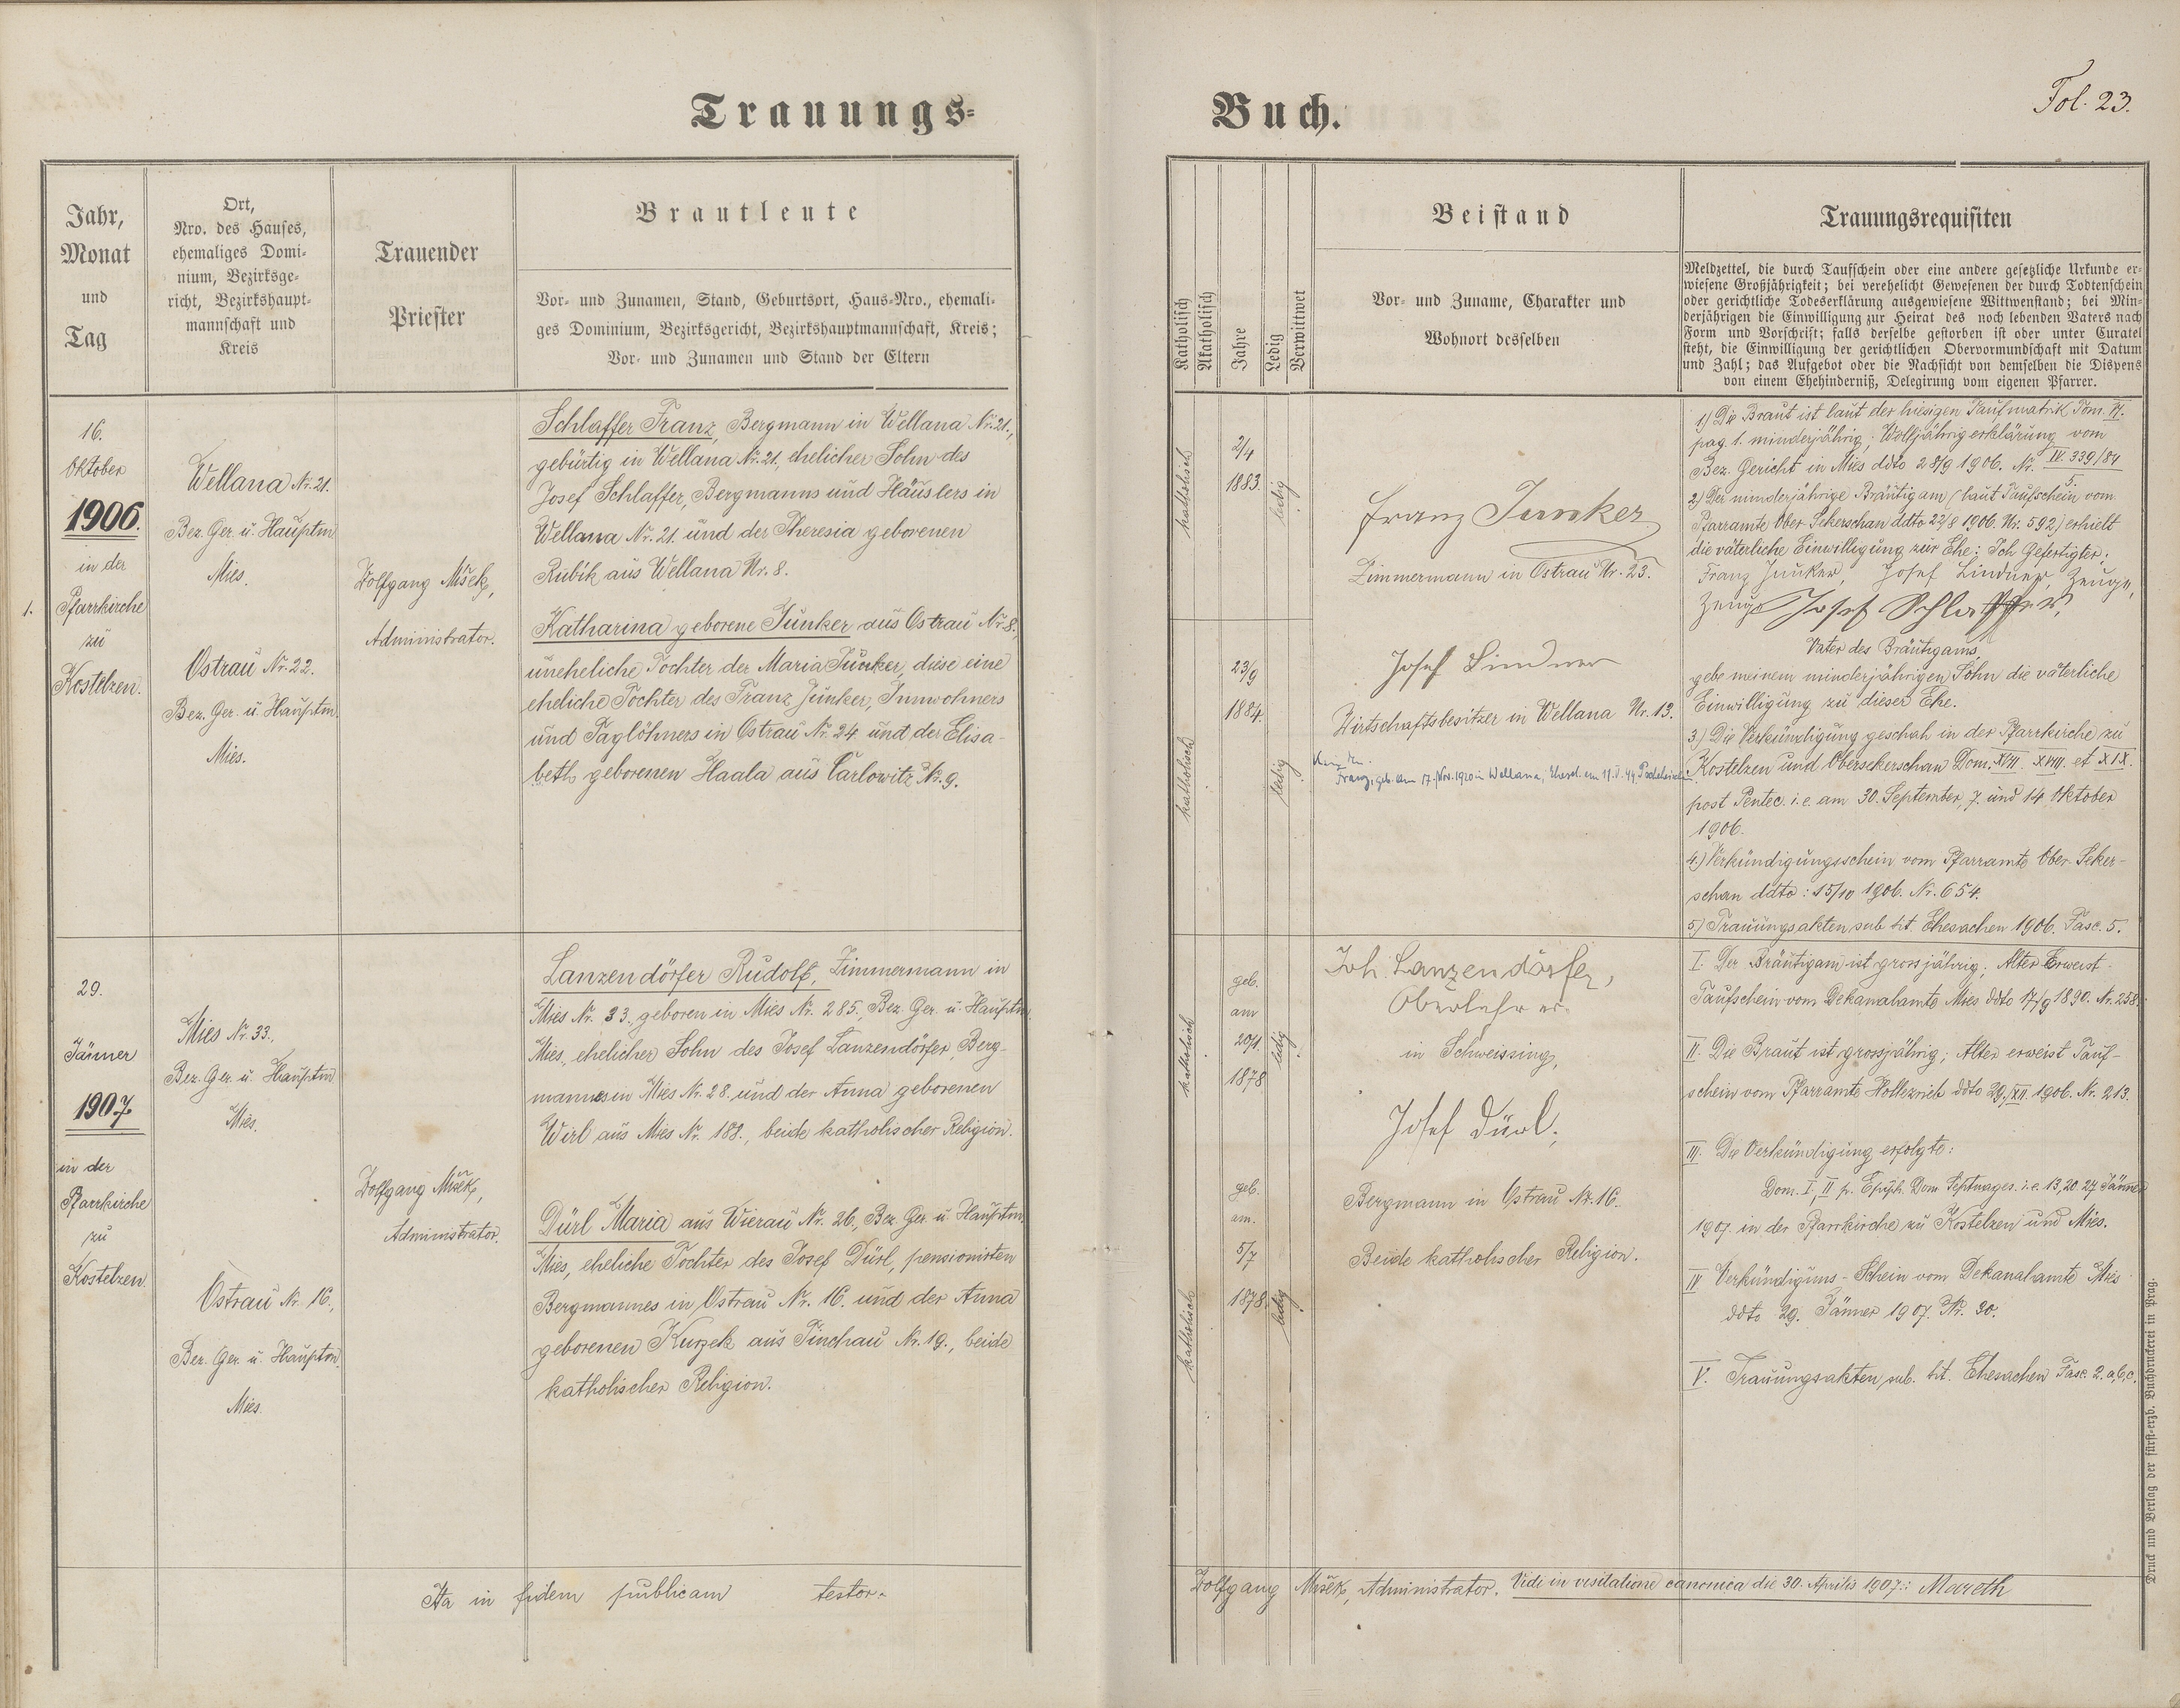 Trauungs-
Buch.
Fol. 23.
Jahr,
Monat
und
Tag
Ort,
Nro. des Hauses,
ehemaliges Domi-
nium, Bezirksge-
richt, Bezirkshaupt-
mannschaft und
Kreis
Trauender
Priester
Brautleute
Vor- und Zunamen, Stand, Geburtsort, Haus-Nro., ehemali-
ges Dominium, Bezirksgericht, Bezirkshauptmannschaft, Kreis;
Vor- und Zunamen und Stand der Eltern
Katholisch
Akatholisch
Jahre
Ledig
Verwittwet
Beistand
Vor- und Zuname, Charakter und
Wohnort desselben
Trauungsrequisiten
Meldzettel, die durch Taufschein oder eine andere gesetzliche Urkunde er-
wiesene Großjährigkeit; bei verehelicht Gewesenen der durch Todtenschein
oder gerichtliche Todeserklärung ausgewiesene Wittwenstand; bei Min-
derjährigen die Einwilligung zur Heirat des noch lebenden Vaters nach
Form und Vorschrift; falls derselbe gestorben ist oder unter Curatel
steht, die Einwilligung der gerichtlichen Obervormundschaft mit Datum
und Zahl; das Aufgebot oder die Nachsicht von demselben die Dispens
von einem Ehehinderniß, Delegirung vom eigenen Pfarrer.
1.
16.
Oktober
1906.
in der
Pfarrkirche
zu
Kostelzen.
Wellana Nr. 21.
Bez. Ger. u. Hauptm
Mies.
Ostrau Nr. 22.
Bez. Ger. u. Hauptm.
Mies.
Wolfgang Mišek,
Administrator.
Schlaffer Franz, Bergmann in Wellana Nr. 21.,
gebürtig in Wellana Nr. 21, ehelicher Sohn des
Josef Schlaffer, Bergmanns und Häuslers in
Wellana Nr. 21. und der Theresia geborenen
Rubik aus Wellana Nr. 8.
Katharina geborene Junker aus Ostrau Nr. 8.,
uneheliche Tochter der Maria Junker, diese eine
eheliche Tochter des Franz Junker, Innwohners
und Taglöhners in Ostrau Nr. 24. und der Elisa-
beth geborenen Haala aus Carlowitz Nr. 9.
katholisch
2/4
1883.
ledig
katholisch
23/9
1884.
ledig
Franz Junker
Zimmermann in Ostrau Nr. 23.
Josef Lindner
Wirtschaftsbesitzer in Wellana Nr. 13.
Franz, geb. am 17. Nov. 1920 in Wellana,
1) Die Braut ist laut der hiesigen Taufmatrik Tom. VI.
pag. 1. minderjährig; Volljährigerklärung vom
Bez. Gericht in Mies ddto 28/9 1906. Nr. IV. 339/84
2) Der minderjährige Bräutigam (laut Taufschein vom
Pfarramte Ober Sekerschan ddto 22/8 1906. Nr. 592) erhielt
die väterliche Einwilligung zur Ehe: Ich Gefertigter:
Franz Junker, Josef Lindner, Zeuge,
Zeuge Josef Schlaffer,
Vater des Bräutigams,
gebe meinem minderjährigen Sohn die väterliche
Einwilligung zu dieser Ehe.
3.) Die Verkündigung geschah in der Pfarrkirche zu
Kostelzen und Obersekerschan Dom. XVII. XVIII. et XIX.
post Pentec. i. e. am 30. September, 7. und 14 Oktober
1906.
4.) Verkündigungsschein vom Pfarramte Ober-Seker-
schan ddto: 15/10 1906. Nr. 654.
5) Trauungsakten sub lit. Ehesachen 1906. Fasc. 5.
29.
Jänner
1907.
in der
Pfarrkirche
zu
Kostelzen.
Mies Nr. 33.,
Bez. Ger. u. Hauptm
Mies.
Ostrau Nr. 16.,
Bez. Ger. u. Hauptm.
Mies.
Wolfgang Mišek,
Administrator.
Lanzendörfer Rudolf, Zimmermann in
Mies Nr. 33., geboren in Mies Nr. 285., Bez. Ger. u. Hauptm.
Mies, ehelicher Sohn des Josef Lanzendörfer, Berg-
mannes in Mies Nr. 28. und der Anna geborenen
Wirl aus Mies Nr. 188., beide katholischer Religion.
Dürl Maria aus Wierau Nr. 26., Bez. Ger. u. Hauptm.
Mies, eheliche Tochter des Josef Dürl, pensionirten
Bergmannes in Ostrau Nr. 16. und der Anna
geborenen Kurzek aus Pinchau Nr. 19., beide
katholischer Religion.
katholisch
geb.
am
20/1.
1878
ledig
katholisch
geb.
am.
5/7
1878.
ledig
Joh. Lanzendörfer,
Oberlehrer
in Schweissing,
Josef Dürl,
Bergmann in Ostrau Nr. 16.
Beide katholischer Religion.
I. Der Bräutigam ist grossjährig; Alter Erweist
Taufschein vom Dekanalamte Mies ddto 17/9 1890. Nr. 258.
II. Die Braut ist grossjährig; Alter erweist Tauf-
schein vom Pfarramte Hollezrieb ddto 29./XII. 1906. Nr. 213.
III. Die Verkündigung erfolgte:
Dom. I, II p. Epiph. Dom. Septuages. i. e. 13, 20. 27 Jänner
1907. in der Pfarrkirche zu Kostelzen und Mies.
IV Verkündigums-Schein vom Dekanalamte Mies
ddto 29. Jänner 1907. Nr. 30.
V. Trauungsakten sub. lit. Ehesachen Fasc. 2. a, b, c.
Ita in fidem publicam testor.
Wolfgang Mišek, Administrator. Vidi in visitatione canonica die 30. Aprilis 1907.: Mareth
Druck und Verlag der fürst-erzb. Buchdruckerei in Prag.